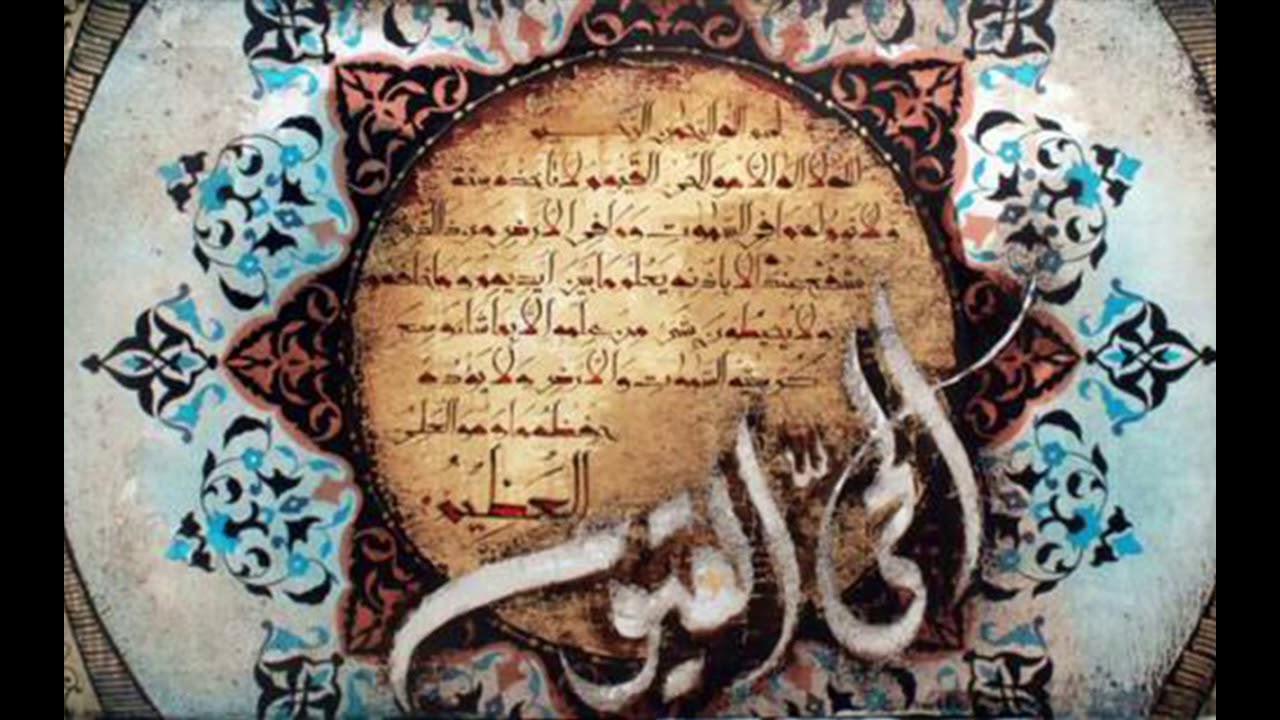 بسم الله الرحمن الرحيم
الله لا اله الا هو الحي القيوم لا تأخذه سنة
ولا نوم له ما في السموت وما في الارض من ذا الذي
يشفع عنده الا باذنه يعلم ما بين أيديهم وما خلفهم
ولا يحيطون بشئ من علمه الا بما شاء وسع
كرسيه السموت والارض ولا يؤده
حفظهما وهو العلي
العظيم
الحي
القيوم